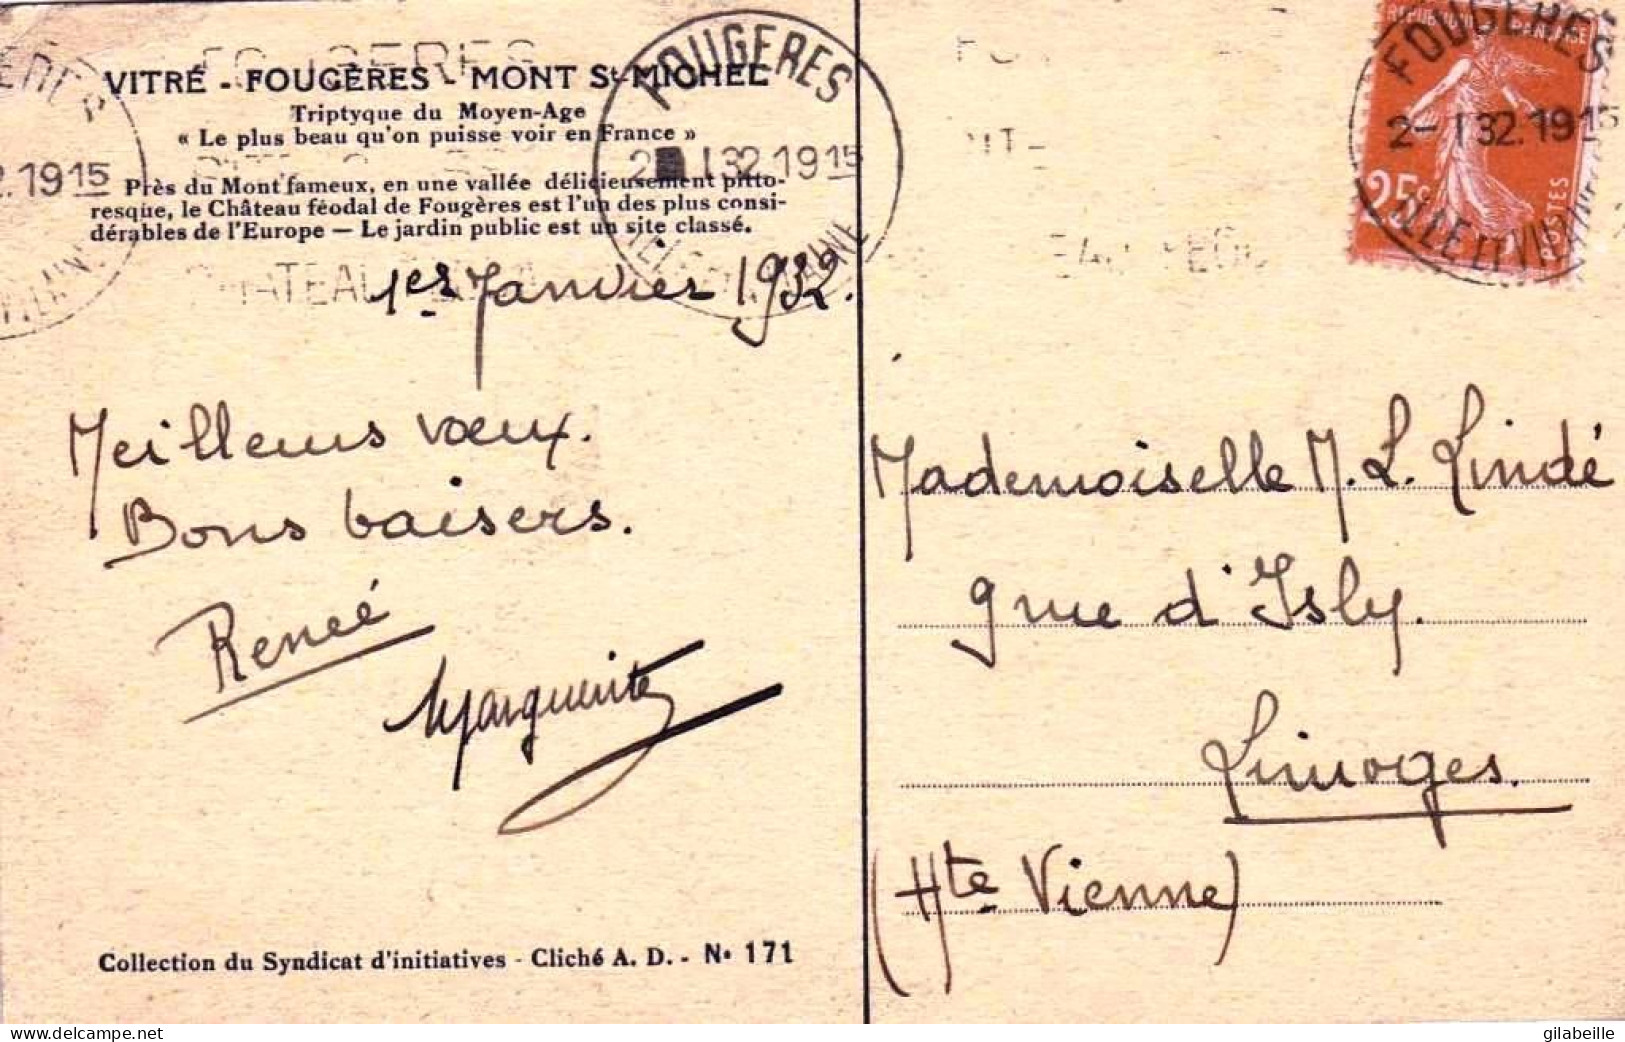 VITRÉ - FOUGÈRES - MONT St-MICHEL
Triptyque du Moyen-Age
« Le plus beau qu'on puisse voir en France »
Près du Mont fameux, en une vallée délicieusement pitto-
resque, le Château féodal de Fougères est l'un des plus consi-
dérables de l'Europe — Le jardin public est un site classé.
1er Janvier 1932.
Meilleurs vœux.
Bons baisers.
Reneé
Marguerite
Collection du Syndicat d'initiatives - Cliché A. D. - N° 171
FOUGERES
2 1 32.1915
FOUGERES
2-1 32.1915
ILLE ET VILAINE
REPUBLIQUE FRANÇAISE
25c
POSTES
Mademoiselle M. L. Lindé
9 rue d'Isly.
Limoges.
(Hte Vienne)
www.delcampe.net
gilabeille